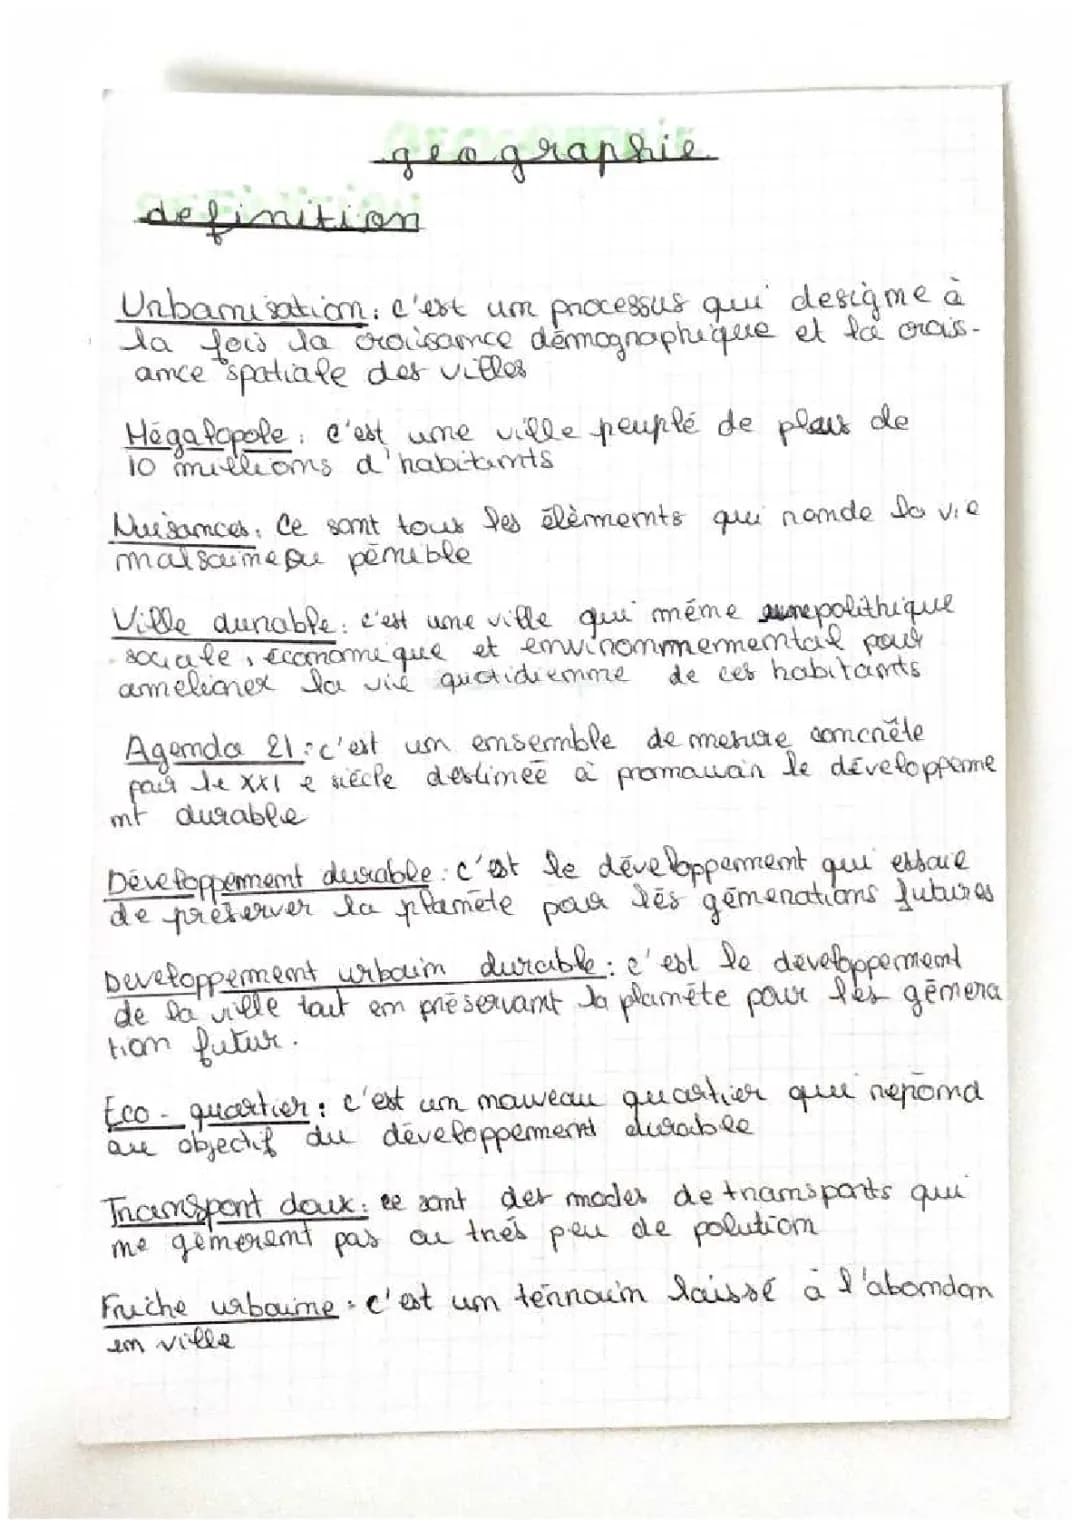 geographie
definition
Urbanisation : c'est un processus qui designe à
la fois la croisance démographique et la crois-
ance spatiale des villes
Mégalopole : c'est une ville peuplé de plus de
10 millions d'habitants
Nuisances : Ce sont tous les élèments qui rende la vie
malsaine ou pénible
Ville durable : c'est une ville qui méne une polithique
sociale, économique et environnemental pour
ameliorer la vie quotidienne de ces habitants
Agenda 21 : c'est un ensemble de mesure concrète
pour le XXI e siécle destineé à promouvoir le développeme
nt durable
Développement durable : c'est le développement qui essaie
de préserver la planéte pour lés génerations futures
Developpement urbain durable : c'est le developpement
de la ville tout en préservant la planéte pour les génera
tion futur.
Eco-quartier : c'est un nouveau quartier qui repond
au objectif du développement durable
Transport doux : ce sont des modes de transports qui
ne génerent pas ou trés peu de polution
Friche urbaine : c'est un térrain laissé à l'abondon
en ville